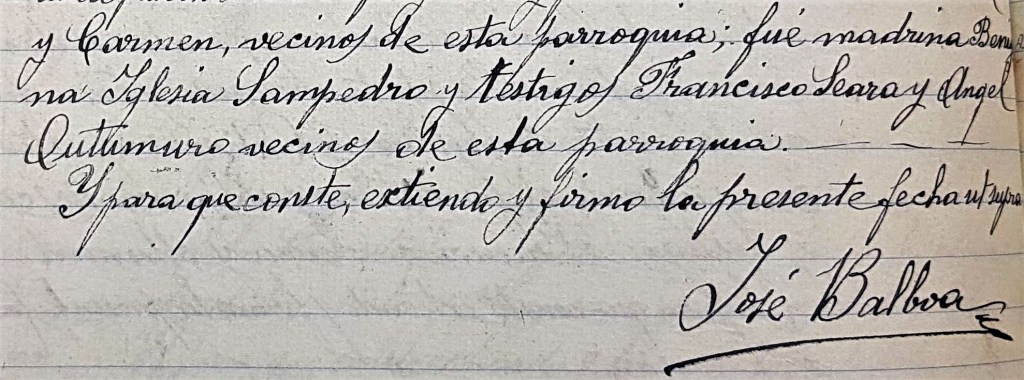 y Carmen, vecinos de esta parroquia; fué madrina Benig
na Iglesia Sampedro y testigos Francisco Seara y Angel
Outumuro vecinos de esta parroquia. — — —
Y para que conste, extiendo y firmo la presente fecha ut supra
José Balboa